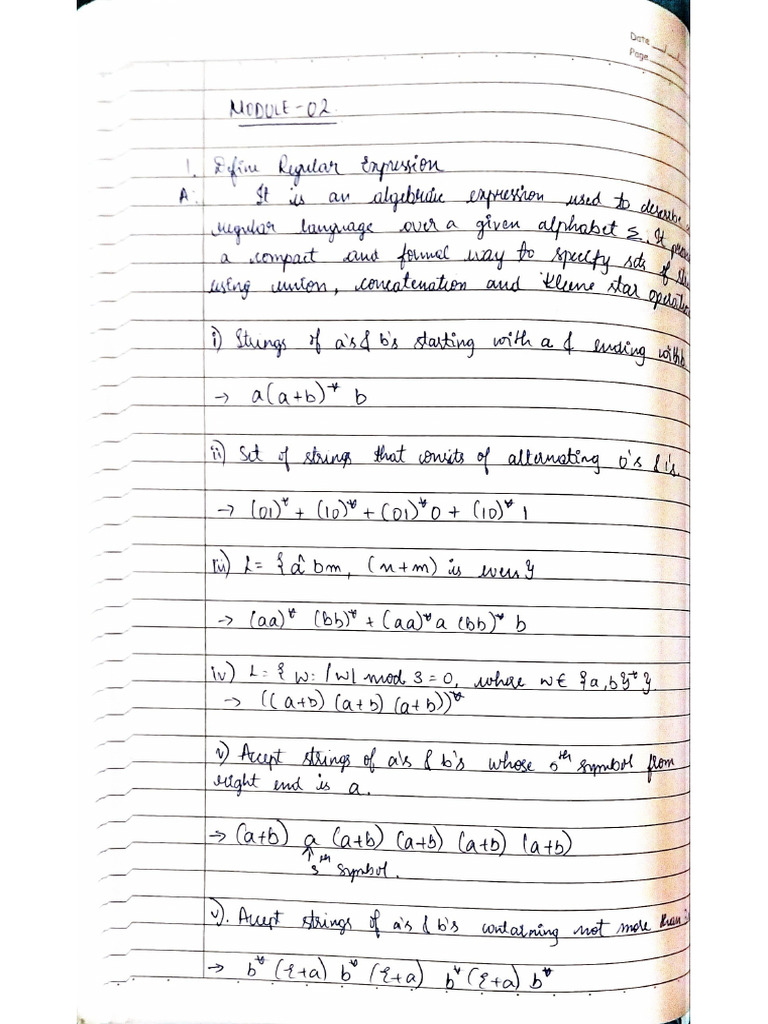 Date __/__/
Page
MODULE-02.
1. Define Regular Expression
A: It is an algebraic expression used to describe a
regular language over a given alphabet Σ. It
a compact and formal way to specify sets of
using union, concatenation and Kleene star
i) Strings of a's & b's starting with a & ending with b
→ a(a+b)* b
ii) Set of strings that consists of alternating 0's & 1's.
→ (01)* + (10)* + (01)*0 + (10)* 1
iii) L= {a^n bm, (n+m) is even}
→ (aa)* (bb)* + (aa)*a (bb)* b
iv) L= { w: |w| mod 3 = 0, where w ∈ {a,b}* }.
→ ((a+b) (a+b) (a+b))*
v) Accept strings of a's & b's whose 5th symbol from
right end is a.
→ (a+b) a (a+b) (a+b) (a+b) (a+b)
↑ 5th symbol.
v). Accept strings of a's & b's containing not more than
→ b* (ε+a) b* (ε+a) b* (ε+a) b*